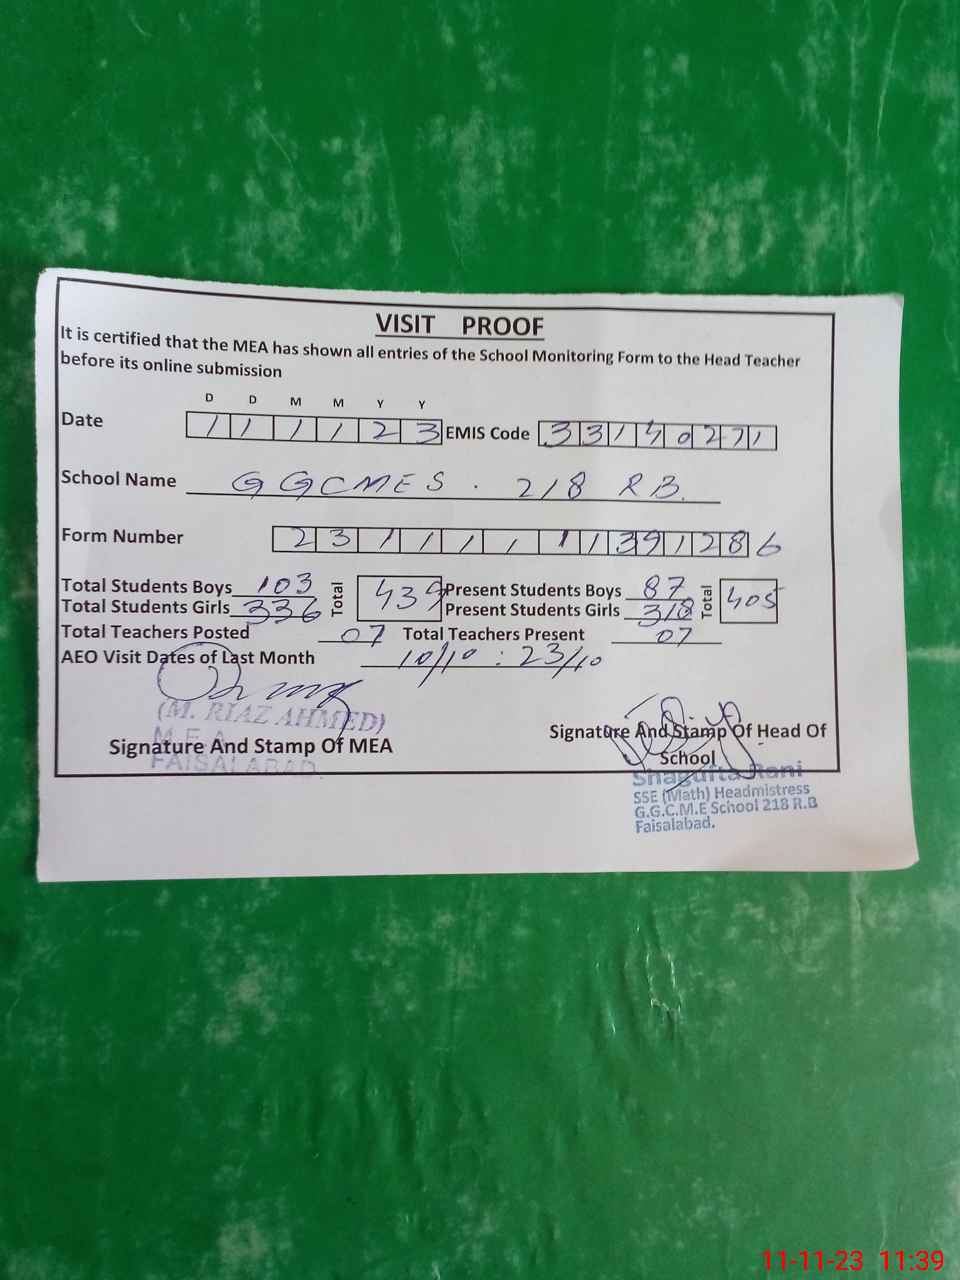 VISIT PROOF
It is certified that the MEA has shown all entries of the School Monitoring Form to the Head Teacher
before its online submission
D D M M Y Y
Date 1 1 1 1 2 3 EMIS Code 3 3 1 4 0 2 7 1
School Name GGCMES . 218 RB.
Form Number 2 3 1 1 1 1 1 1 3 9 1 2 8 6
Total Students Boys 103 Total 439 Present Students Boys 87 Total 405
Total Students Girls 336 Present Students Girls 318
Total Teachers Posted 07 Total Teachers Present 07
AEO Visit Dates of Last Month 10/10 : 23/10
(M. RIAZ AHMED)
M.E.A
FAISALABAD
Signature And Stamp Of MEA
Signature And Stamp Of Head Of
School
Shagufta Rani
SSE (Math) Headmistress
G.G.C.M.E School 218 R.B
Faisalabad.
11-11-23 11:39